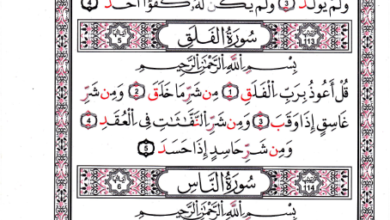 وَلَمْ يُولَدْ ③ وَلَمْ يَكُن لَّهُ كُفُوًا أَحَدٌ ④
سُورَةُ الفَلَقِ
بِسْمِ اللَّهِ الرَّحْمَٰنِ الرَّحِيمِ
قُلْ أَعُوذُ بِرَبِّ الْفَلَقِ ① مِن شَرِّ مَا خَلَقَ ② وَمِن شَرِّ
غَاسِقٍ إِذَا وَقَبَ ③ وَمِن شَرِّ النَّفَّاثَاتِ فِي الْعُقَدِ ④
وَمِن شَرِّ حَاسِدٍ إِذَا حَسَدَ ⑤
سُورَةُ النَّاسِ
بِسْمِ اللَّهِ الرَّحْمَٰنِ الرَّحِيمِ